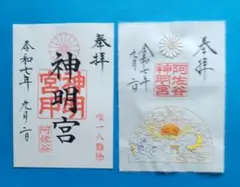 奉拝
神明宮
神明宮
唯一八難除
阿佐谷
令和七年
九月二日
奉拝
阿佐谷
神明宮
令和七年
九月二日